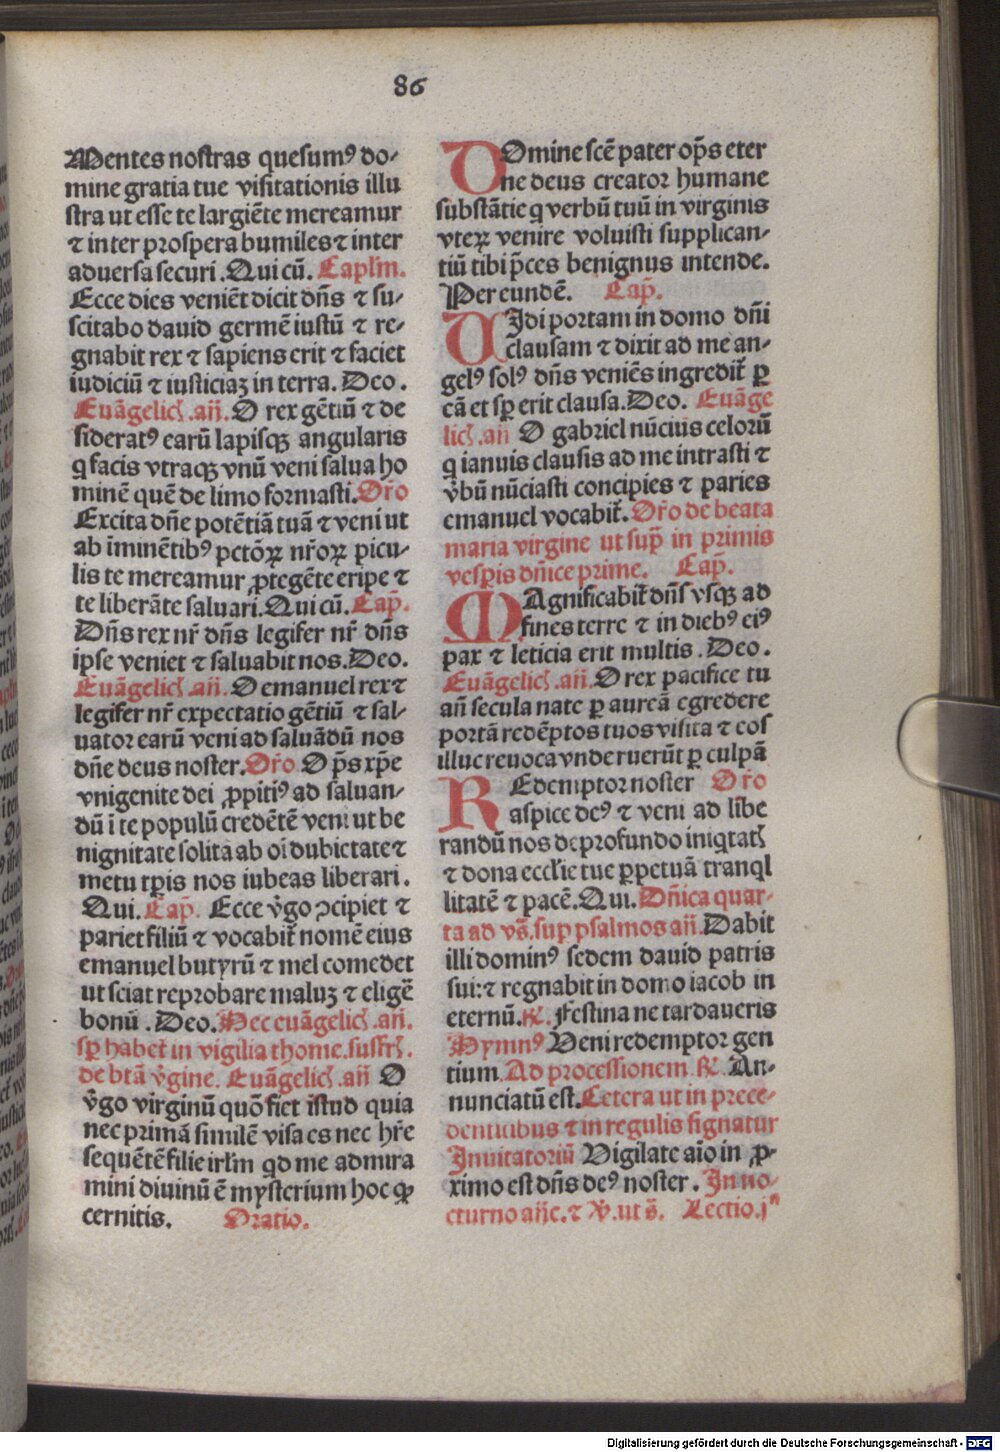 86
Mentes nostras quesumꝰ do-
mine gratia tue visitationis illu
stra ut esse te largiẽte mereamur
⁊ inter prospera humiles ⁊ inter
adversa securi .Qui cũ. Caplm̃.
Ecce dies veniẽt dicit dñs ⁊ su-
scitabo david germẽ iustũ ⁊ re-
gnabit rex ⁊ sapiens erit ⁊ faciet
iudiciũ ⁊ iusticiaꝫ in terra. Deo.
Euãgelicꝭ .añ. O rex gẽtiũ ⁊ de
sideratꝰ earũ lapisqꝫ angularis
q facis vtraqꝫ vnũ veni salua ho
minẽ quẽ de limo formasti. Or̃o
Excita dñe potẽtiã tuã ⁊ veni ut
ab im̃inẽtibꝰ pctõꝝ nr̃oꝝ picu-
lis te mereamur ꝓtegẽte eripe ⁊
te liberãte saluari. Qui cũ. Cap̃.
Dñs rex nr̃ dñs legifer nr̃ dñs
ipse veniet ⁊ saluabit nos. Deo.
Euãgelicꝭ .añ. O emanuel rex ⁊
legifer nr̃ expectatio gẽtiũ ⁊ sal-
uator earũ veni ad saluãdũ nos
dñe deus noster. Or̃o O p̃s xp̃e
vnigenite dei ꝓpitiꝰ ad saluan-
dũ i te populũ credẽtẽ veni ut be
nignitate solita ab oĩ dubietate ⁊
metu tp̃is nos iubeas liberari.
Qui. Cap̃. Ecce v̾go ↄcipiet ⁊
pariet filiũ ⁊ vocabit̃ nomẽ eius
emanuel butyrũ ⁊ mel comedet
ut sciat reprobare maluꝫ ⁊ eligẽ
bonũ . Deo. Nec euãgelicꝭ .añ.
sp̃ habet̃ in vigilia thome. suffrꝭ.
de btã v̾gine. Euãgelicꝭ .añ O
v̾go virginũ quõ fiet istud quia
nec primã similẽ visa es nec hr̃e
sequẽtẽ filie irl̃m qd me admira
mini divinũ ẽ mysterium hoc qp
cernitis. Oratio.
DOmine scẽ pater op̃s eter
ne deus creator humane
substãtie q verbũ tuũ in virginis
vteꝝ venire voluisti supplican-
tiũ tibi p̃ces benignus intende.
Per eundẽ. Cap̃.
UIdi portam in domo dñi
clausam ⁊ dixit ad me an-
gelꝰ solꝰ dñs veniẽs ingredit̃ ꝑ
eã et sp̃ erit clausa. Deo. Euãge
licꝭ .añ O gabriel nũcius celorũ
q ianuis clausis ad me intrasti ⁊
v̾bũ nũciasti concipies ⁊ paries
emanuel vocabit̃. Or̃o de beata
maria virgine ut sup̃ in primis
vesp̃is dñice prime. Cap̃.
MAgnificabit̃ dñs vsqꝫ ad
fines terre ⁊ in diebꝰ eiꝰ
pax ⁊ leticia erit multis . Deo .
Euãgelicꝭ .añ. O rex pacifice tu
añ secula nate ꝑ aureã egredere
portã redẽptos tuos visita ⁊ eos
illuc revoca vnde ruerũt ꝑ culpã
REdemptor noster Or̃o
aspice deꝰ ⁊ veni ad libe
randũ nos de profundo iniqtatꝭ
⁊ dona eccl̃ie tue ꝑpetuã tranql
litatẽ ⁊ pacẽ. Qui. Dñica quar-
ta ad vs̃. sup psalmos añ. Dabit
illi dominꝰ sedem dauid patris
sui: ⁊ regnabit in domo iacob in
eternũ. ℟. Festina ne tardaueris
Hymnꝰ Veni redemptor gen
tium. Ad processionem ℟. An-
nunciatũ est. Cetera ut in prece-
dentiibus ⁊ in regulis signatur
Inuitatoriũ Vigilate aĩo in ꝓ-
ximo est dñs deꝰ noster . In no-
cturno añe. ⁊ ℣. ut s̃. Lectio. jᵃ
Digitalisierung gefördert durch die Deutsche Forschungsgemeinschaft - DFG